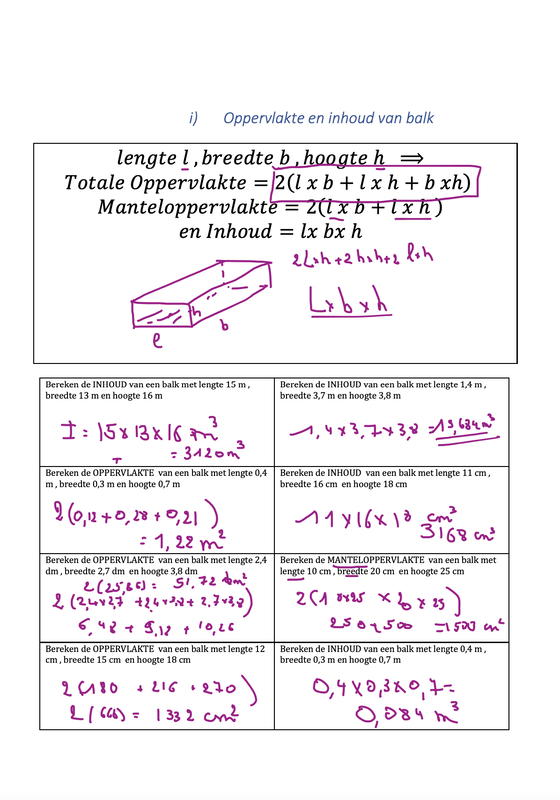 i) Oppervlakte en inhoud van balk
lengte l , breedte b , hoogte h ⟹
Totale Oppervlakte = 2(l x b + l x h + b xh)
Manteloppervlakte = 2(l x b + l x h )
en Inhoud = lx bx h
L x b x h
h
b
l
Bereken de INHOUD van een balk met lengte 15 m ,
breedte 13 m en hoogte 16 m
I = 15 x 13 x 16 m³
= 3120 m³
Bereken de INHOUD van een balk met lengte 1,4 m ,
breedte 3,7 m en hoogte 3,8 m
1,4 x 3,7 x 3,8 = 19,684 m³
Bereken de OPPERVLAKTE van een balk met lengte 0,4
m , breedte 0,3 m en hoogte 0,7 m
2(0,12 + 0,28 + 0,21 )
= 1,22 m²
Bereken de INHOUD van een balk met lengte 11 cm ,
breedte 16 cm en hoogte 18 cm
11 x 16 x 18 cm³
3168 cm³
Bereken de OPPERVLAKTE van een balk met lengte 2,4
dm , breedte 2,7 dm en hoogte 3,8 dm
2(25,86) = 51,72 dm²
2(2,4x2,7 + 2,4x3,8 + 2,7x3,8)
6,48 + 9,12 + 10,26
Bereken de MANTELOPPERVLAKTE van een balk met
lengte 10 cm , breedte 20 cm en hoogte 25 cm
2(10x25 x 20 x 25)
250 + 500 = 1500 cm²
Bereken de OPPERVLAKTE van een balk met lengte 12
cm , breedte 15 cm en hoogte 18 cm
2(180 + 216 + 270)
2(666) = 1332 cm²
Bereken de INHOUD van een balk met lengte 0,4 m ,
breedte 0,3 m en hoogte 0,7 m
0,4 x 0,3 x 0,7 =
0,084 m³